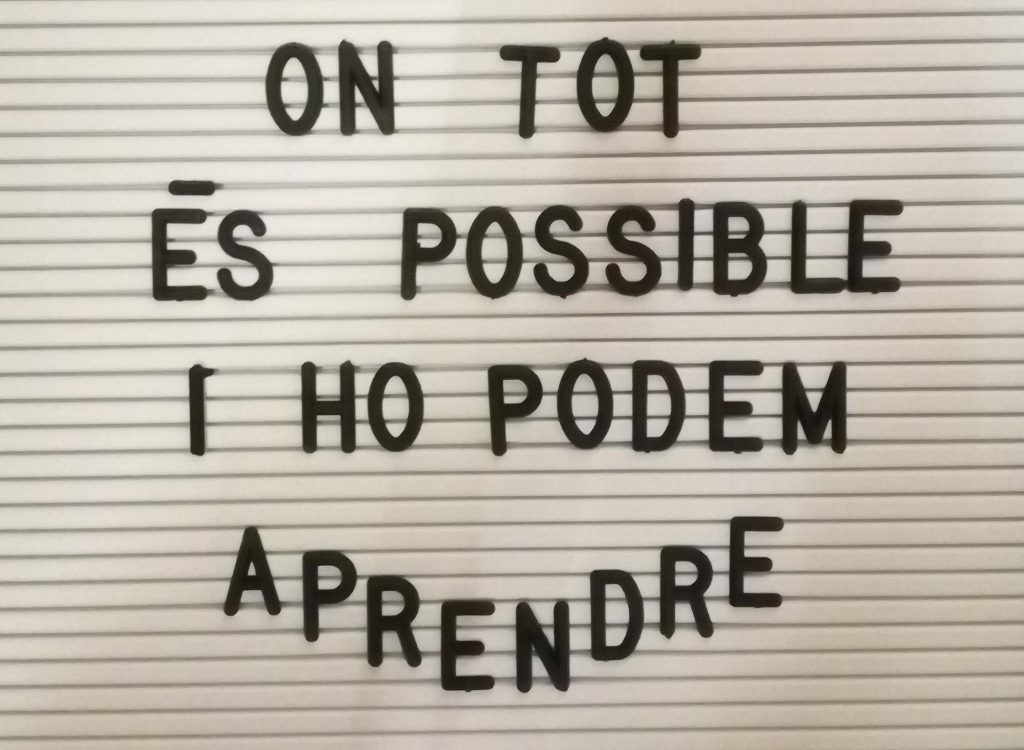 ON TOT
ĒS POSSIBLE
I HO PODEM
APRENDRE